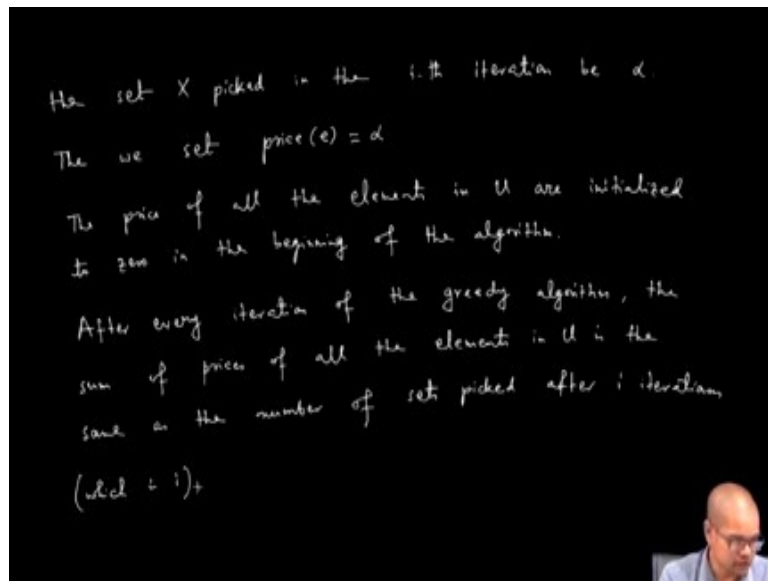 the set X picked in the i-th iteration be α.
The we set price(e) = α
The price of all the elements in U are initialized
to zero in the beginning of the algorithm.
After every iteration of the greedy algorithm, the
sum of prices of all the elements in U is the
same as the number of sets picked after i iterations
(which is i),